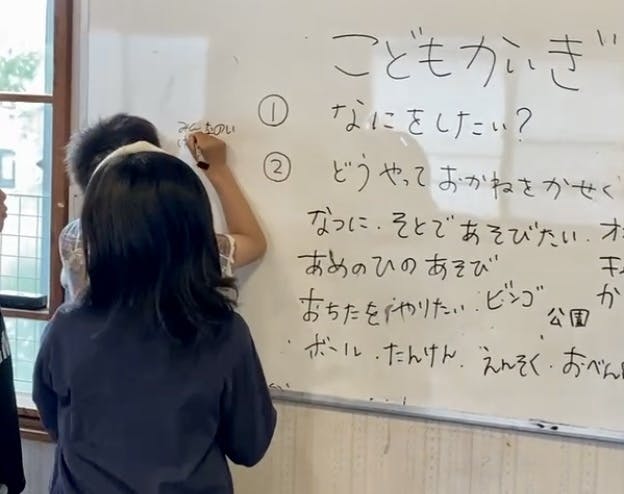 こどもかいぎ
① なにをしたい?
② どうやって おかねを かせぐ
なつに・そとであそびたい・オ
あめのひの あそび
おちたを やりたい・ビンゴ 公園
ボール・たんけん・えんそく・おべん
みんなのい